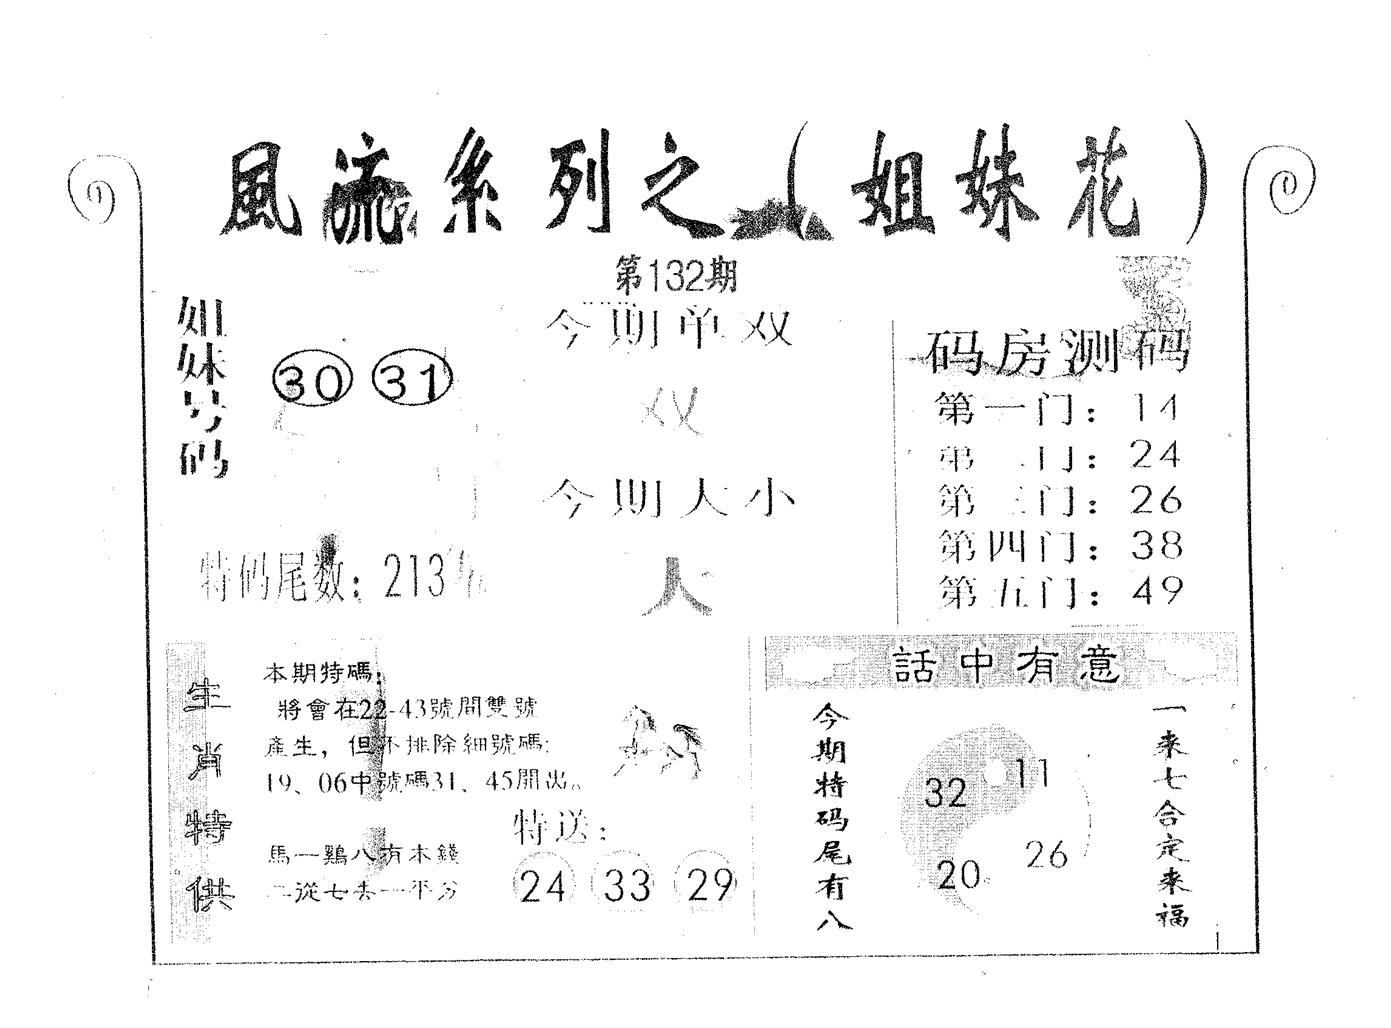 風流系列之（姐妹花）
第132期
姐妹号码
30 31
特码尾数：213
今期单双
双
今期大小
大
码房测码
第一门：14
第二门：24
第三门：26
第四门：38
第五门：49
生肖特供
本期特碼：
將會在22-43號間雙號
產生，但不排除細號碼：
19、06中號碼31、45開出。
馬一鷄八有本錢
二從七去一平分
特送：
24 33 29
話中有意
今期特码尾有八
32 11
20 26
一来七合定来福